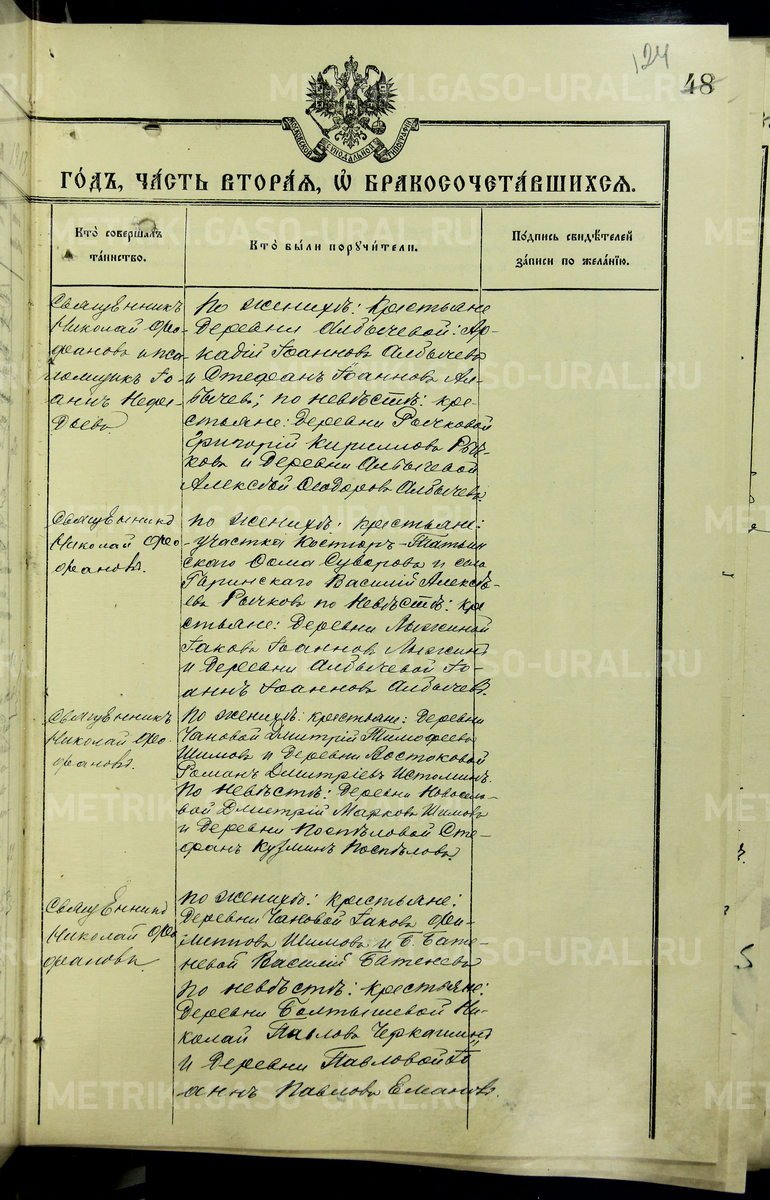 124
48
МОСКОВСКОЙ СѴНОДАЛЬНОЙ ТИПОГРАФІИ
ГО́ДЪ, ЧА́СТЬ ВТОРА́Я, Ѽ БРАКОСОЧЕТА́ВШИХСЯ.
Кто̀ совершалъ
та́инство.
Кто̀ бы́ли поручи́тели.
По́дпись свидѣ́телей
за́писи по жела́нію.
Священникъ
Николай Фео-
фановъ и пса-
ломщикъ Іо-
аннъ Нефе-
дьевъ.
По женихѣ: крестьяне
Деревни Албычевой: Ар-
кадій Іоанновъ Албычевъ
и Стефанъ Іоанновъ Ал-
бычев; по невѣстѣ: кре-
стьяне: Деревни Рычковой
Григорій Кирилловъ Рыч-
ковъ и Деревни Албычевой
Алексѣй Ѳеодоровъ Албычевъ.
Священникъ
Николай Фео-
фановъ.
По женихѣ: крестьяне:
участка Костюр-
скаго Ѳома Суворовъ и села
Гаринскаго Василій Алексѣ-
евъ Рычковъ по невѣстѣ: кре
стьяне: Деревни Лыжиной
Іаковъ Іоанновъ Лыжинъ
и Деревни Албычевой Іо-
аннъ Іоанновъ Албычевъ.
Священникъ
Николай Фео-
фановъ.
По женихѣ: крестьяне: Деревни
Чановой Дмитрій Тимофеевъ
Шимовъ и Деревни Востоковой
Романъ Дмитріевъ Истоминъ.
По невѣстѣ: Деревни Новосело-
вой Дмитрій Марковъ Шимовъ
и Деревни Поспѣловой Сте-
фанъ Кузминъ Поспѣловъ
Священникъ
Николай Фео
фановъ.
По женихѣ: крестьяне:
Деревни Чановой Іаковъ Фи-
липповъ Шимовъ и Б. Бате-
невой Василій Батеневъ
По невѣстѣ: крестьяне:
Деревни Болтышевой Ни-
колай Павловъ Черкашинъ
и Деревни Павловой Іо
аннъ Павловъ Емановъ.
METRIKI.GASO-URAL.RU